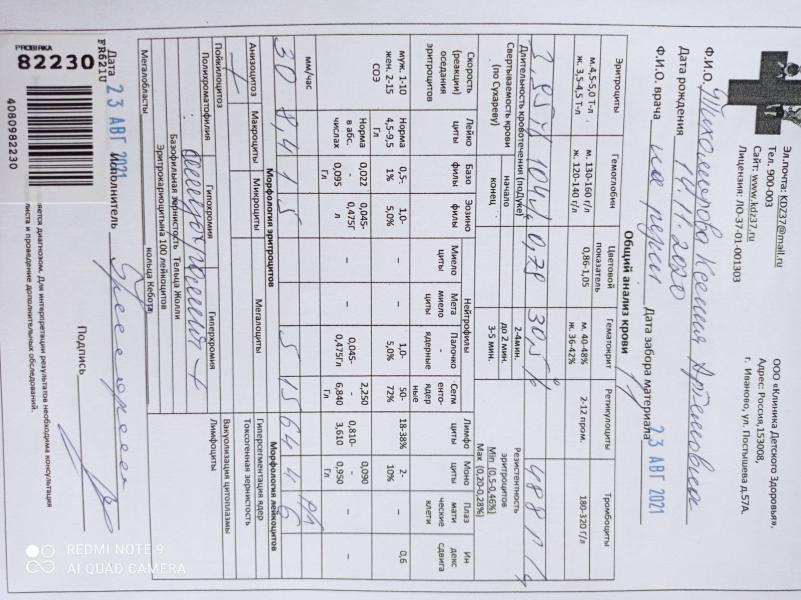 ООО «Клиника Детского Здоровья».
Адрес: Россия,153008,
г. Иваново, ул. Постышева д.57А.
Эл.почта: KDZ37@mail.ru
Тел. 900-003
Сайт: www.kdz37.ru
Лицензия: ЛО-37-01-001303
Ф.И.О. Тихомирова Ксения Артемовна
Дата рождения 14.11.2020 Дата забора материала 23 АВГ 2021
Ф.И.О. врача
Общий анализ крови
Эритроциты Гемоглобин Цветовой показатель Гематокрит Ретикулоциты Тромбоциты
м. 4,5-5,0 Т-л м. 130-160 г/л 0,86-1,05 м. 40-48% 2-12 пром. 180-320 Г/л
ж. 3,5-4,5 Т-л ж. 120-140 г/л ж. 36-42%
3,95 104 0,79 30,5 488
Длительность кровотечения (поДуке) 2-4мин. Резистентность эритроцитов
Свертываемость крови (по Сухареву) начало до 2 мин. Min (0,5-0,46%)
конец 3-5 мин. Max (0,20-0,28%)
Скорость (реакции) оседания эритроцитов Лейко циты Базо филы Эозино филы Нейтрофилы Лимфо циты Моно циты Плаз мати ческие клети Ин декс сдвига
Миело циты Мета миело циты Палочко - ядерные Сегм енто- ядер ные
муж. 1-10 Норма 0,5- 1,0- – – 1,0- 50- 18-38% 2- – 0,6
жен. 2-15 4,5-9,5 1% 5,0% 5,0% 72% 10%
СОЭ Г/л
Норма в абс. числах 0,022 - 0,095 Г/л 0,045- 0,475Г л – – 0,045- 0,475Г/л 2,250 - 6,840 Г/л 0,810- 3,610 0,090 - 0,950 – –
мм/час
30 8,4 1 5 5 15 64 4 6
Морфология эритроцитов Морфология лейкоцитов
Анизоцитоз + Макроциты Микроциты Мегалоциты Гиперсегментация ядер
Токсогенная зернистость
Пойкилоцитоз Гипохромия Гиперхромия Вакуолизация цитоплазмы
Полихроматофилия гипохромия + Лимфоциты
Базофильная зернистость Тельца Жолли кольца Кебота
Мегалобласты Эритрокариоцитына 100 лейкоцитов
Дата 23 АВГ 2021 Исполнитель Подпись
PROBIRKA
82230
FR621U
4080982230
яется диагнозом. Для интерпретации результатов необходима консультация
листа и проведение дополнительных обследований.
REDMI NOTE 9
AI QUAD CAMERA